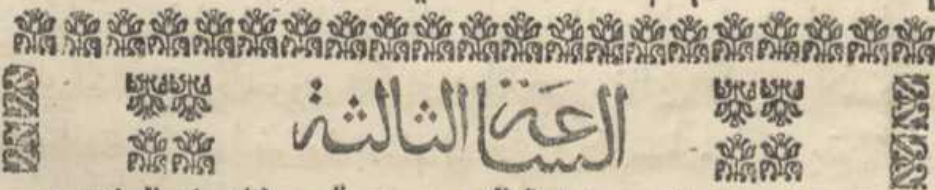 الساعة الثالثة